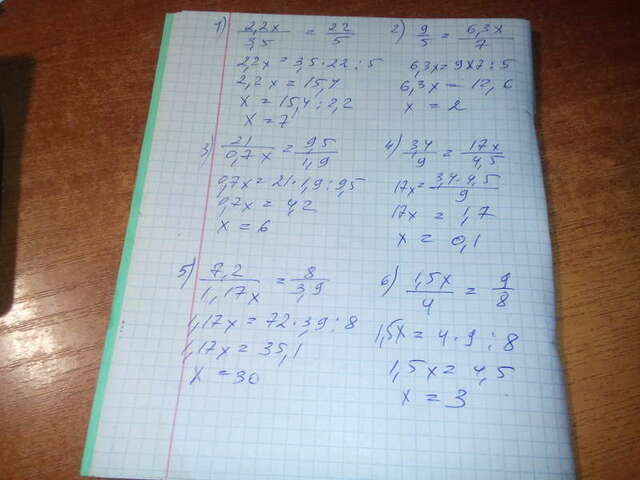 1) 2,2x/3,5 = 22/5
2,2x = 3,5 · 22 : 5
2,2x = 15,4
x = 15,4 : 2,2
x = 7
2) 9/5 = 6,3x/7
6,3x = 9x7 : 5
6,3x = 12,6
x = 2
3) 21/0,7x = 9,5/1,9
0,7x = 21 · 1,9 : 9,5
0,7x = 4,2
x = 6
4) 3,4/9 = 17x/4,5
17x = 3,4 · 4,5/9
17x = 1,7
x = 0,1
5) 7,2/1,17x = 8/3,9
1,17x = 72 · 3,9 : 8
1,17x = 35,1
x = 30
6) 1,5x/4 = 9/8
1,5x = 4 · 9 : 8
1,5x = 4,5
x = 3